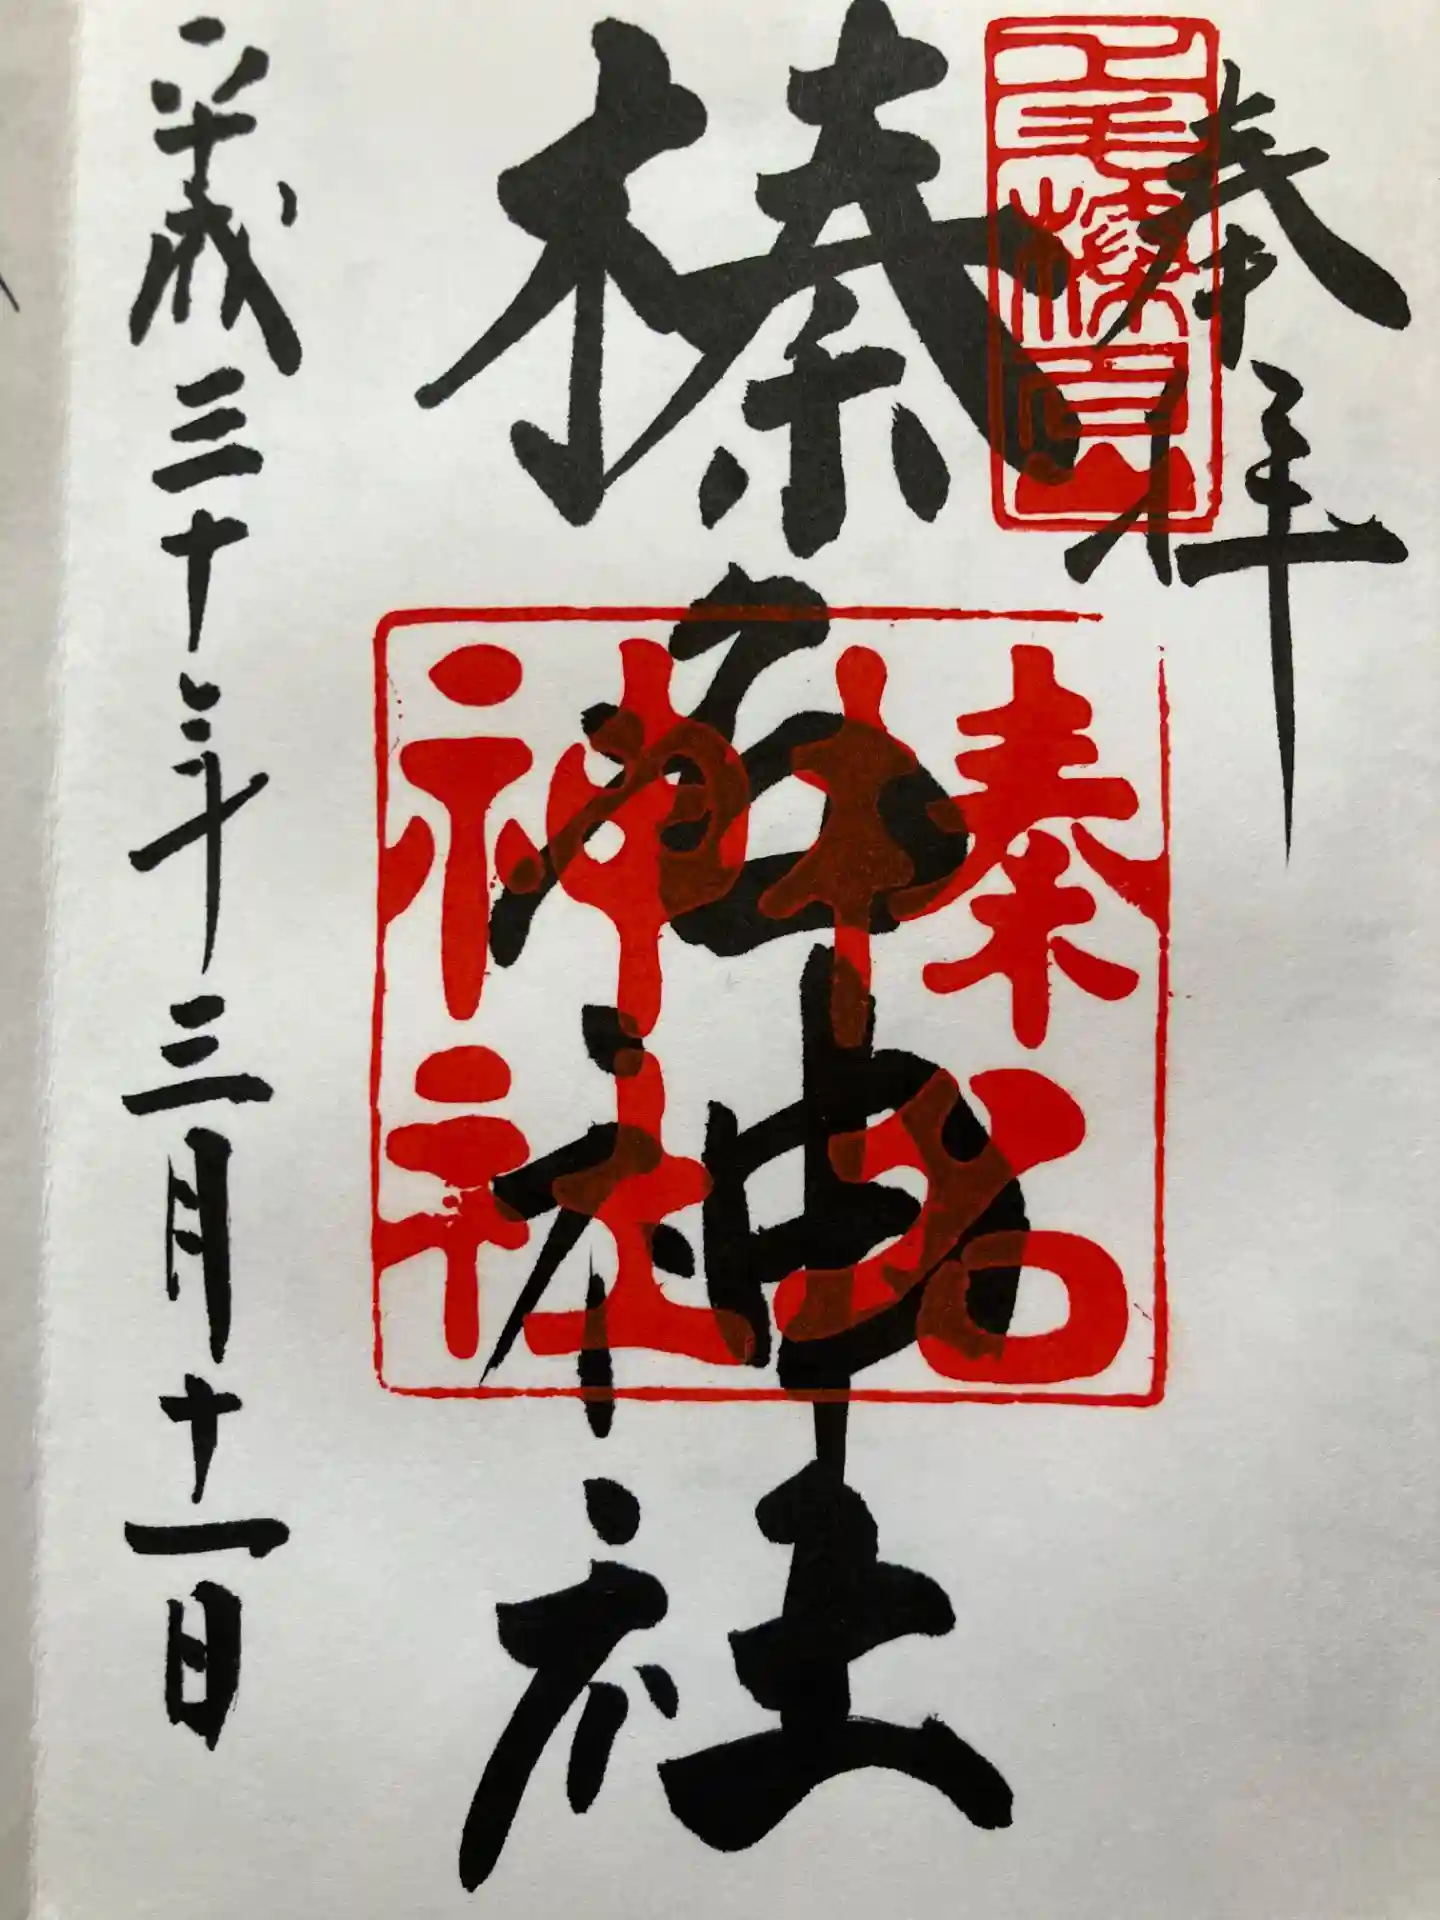 奉拝
上毛榛名山
榛名神社
榛名
神社
平成三十年三月十一日